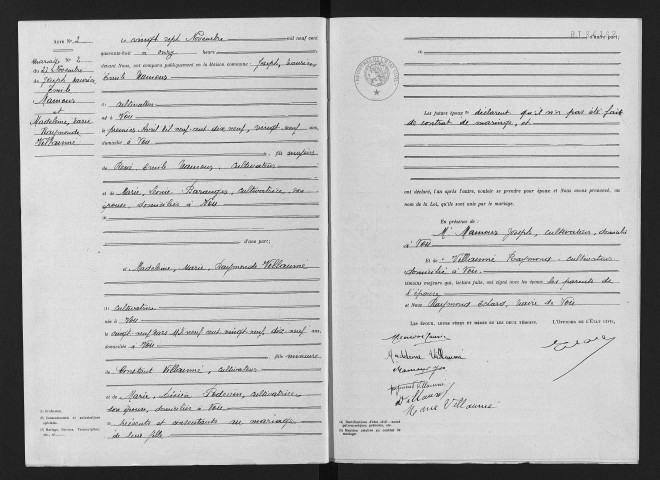 Acte N° 2
Mariage N° 2
du 27 Novembre
de Joseph
Emile
Mamour
et
Madeleine, Marie
Raymonde
Villaumé
Le vingt sept Novembre mil neuf cent
quarante-huit à onze heures
devant Nous, ont comparu publiquement en la Maison commune Joseph,
Emile Mamour
(1) cultivateur
né à Vou
le premier Avril mil neuf cent dix neuf, vingt neuf ans,
domicilié à Vou
fils majeur
de René, Emile Mamour, cultivateur
et de Marie, Léonie Baranger, cultivatrice, son
épouse, domiciliés à Vou
d'une part;
et Madeleine, Marie, Raymonde Villaumé
(1) cultivatrice
née à Vou
le vingt neuf Mars mil neuf cent vingt neuf, dix neuf ans,
domiciliée à Vou
fille mineure
de Constant Villaumé, cultivateur
et de Marie, cultivatrice
son épouse, domiciliés à Vou
présents et consentants au mariage
de leur fille
(1) Profession.
d'autre part;
Les futurs époux déclarent qu'il n'a pas été fait
de contrat de mariage, et
ont déclaré, l'un après l'autre, vouloir se prendre pour époux et Nous avons prononcé, au
nom de la Loi, qu'ils sont unis par le mariage.
En présence de :
Mr Mamour Joseph, cultivateur, domicilié
à Vou
Et de Villaumé Raymond cultivateur
domicilié à Vou
témoins majeurs qui, lecture faite, ont signé avec les époux les parents de
l'épouse
et Nous Raymond, maire de Vou
LES ÉPOUX, LEURS PÈRES ET MÈRES ET LES DEUX TÉMOINS,
L'OFFICIER DE L'ÉTAT CIVIL,
Madeleine Villaumé
Villaumé
Marie Villaumé